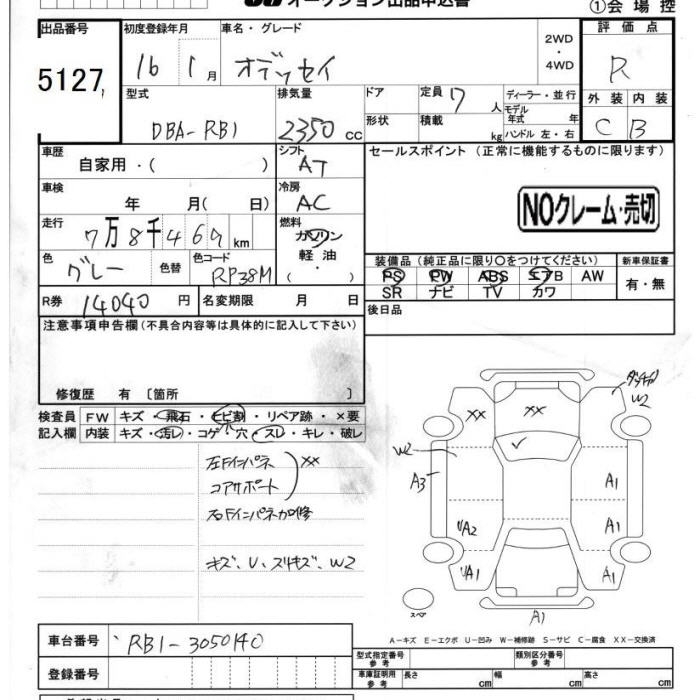 オークション出品申込書
①会場控
出品番号 5127
初度登録年月 16 1月
車名・グレード オデッセイ
2WD・4WD
評価点 R
外装 内装
C B
型式 DBA-RB1
排気量 2350 cc
ドア 形状
定員 7人
積載 kg
ディーラー・並行
モデル年式 年
ハンドル 左・右
車歴 自家用・( )
シフト AT
セールスポイント (正常に機能するものに限ります)
車検 年 月( 日)
冷房 AC
NOクレーム・売切
走行 7万8千469km
燃料 ガソリン 軽油 ( ・ )
色 グレー 色替 色コード RP38M
装備品 (純正品に限り○をつけてください)
新車保証書
PS PW ABS エアB AW
SR ナビ TV カワ
有・無
R券 14040円
名変期限 月 日
後日品
注意事項申告欄 (不具合内容等は具体的に記入して下さい)
修復歴 有 〔箇所 〕
検査員記入欄
FW キズ・飛石・ヒビ割・リペア跡・×要
内装 キズ・汚レ・コゲ・穴・スレ・キレ・破レ
左Fインパネ
コアサポート
XX
右Fインパネ加修
キズ、U、スリキズ、W2
XX XX W2
W2
A3 A1
UA2 A1
UA1 A1
A1
スペア
A-キズ E-エクボ U-凹み W-補修跡 S-サビ C-腐食 XX-交換済
車台番号 RB1-3050140
登録番号
型式指定番号 参考
類別区分番号 参考
車庫証明用 参考 長さ cm 幅 cm 高さ cm